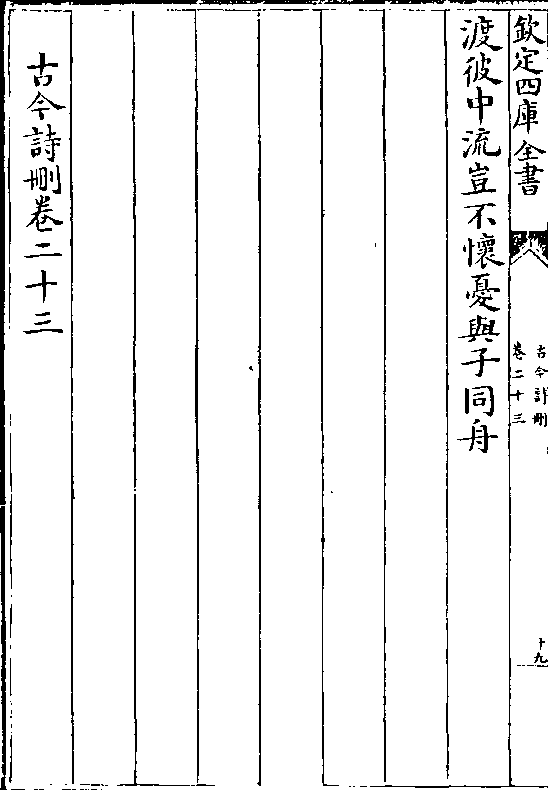 欽定四庫全書
古今詩刪
卷二十三
十九
渡彼中流豈不懷憂與子同舟
古今詩刪卷二十三